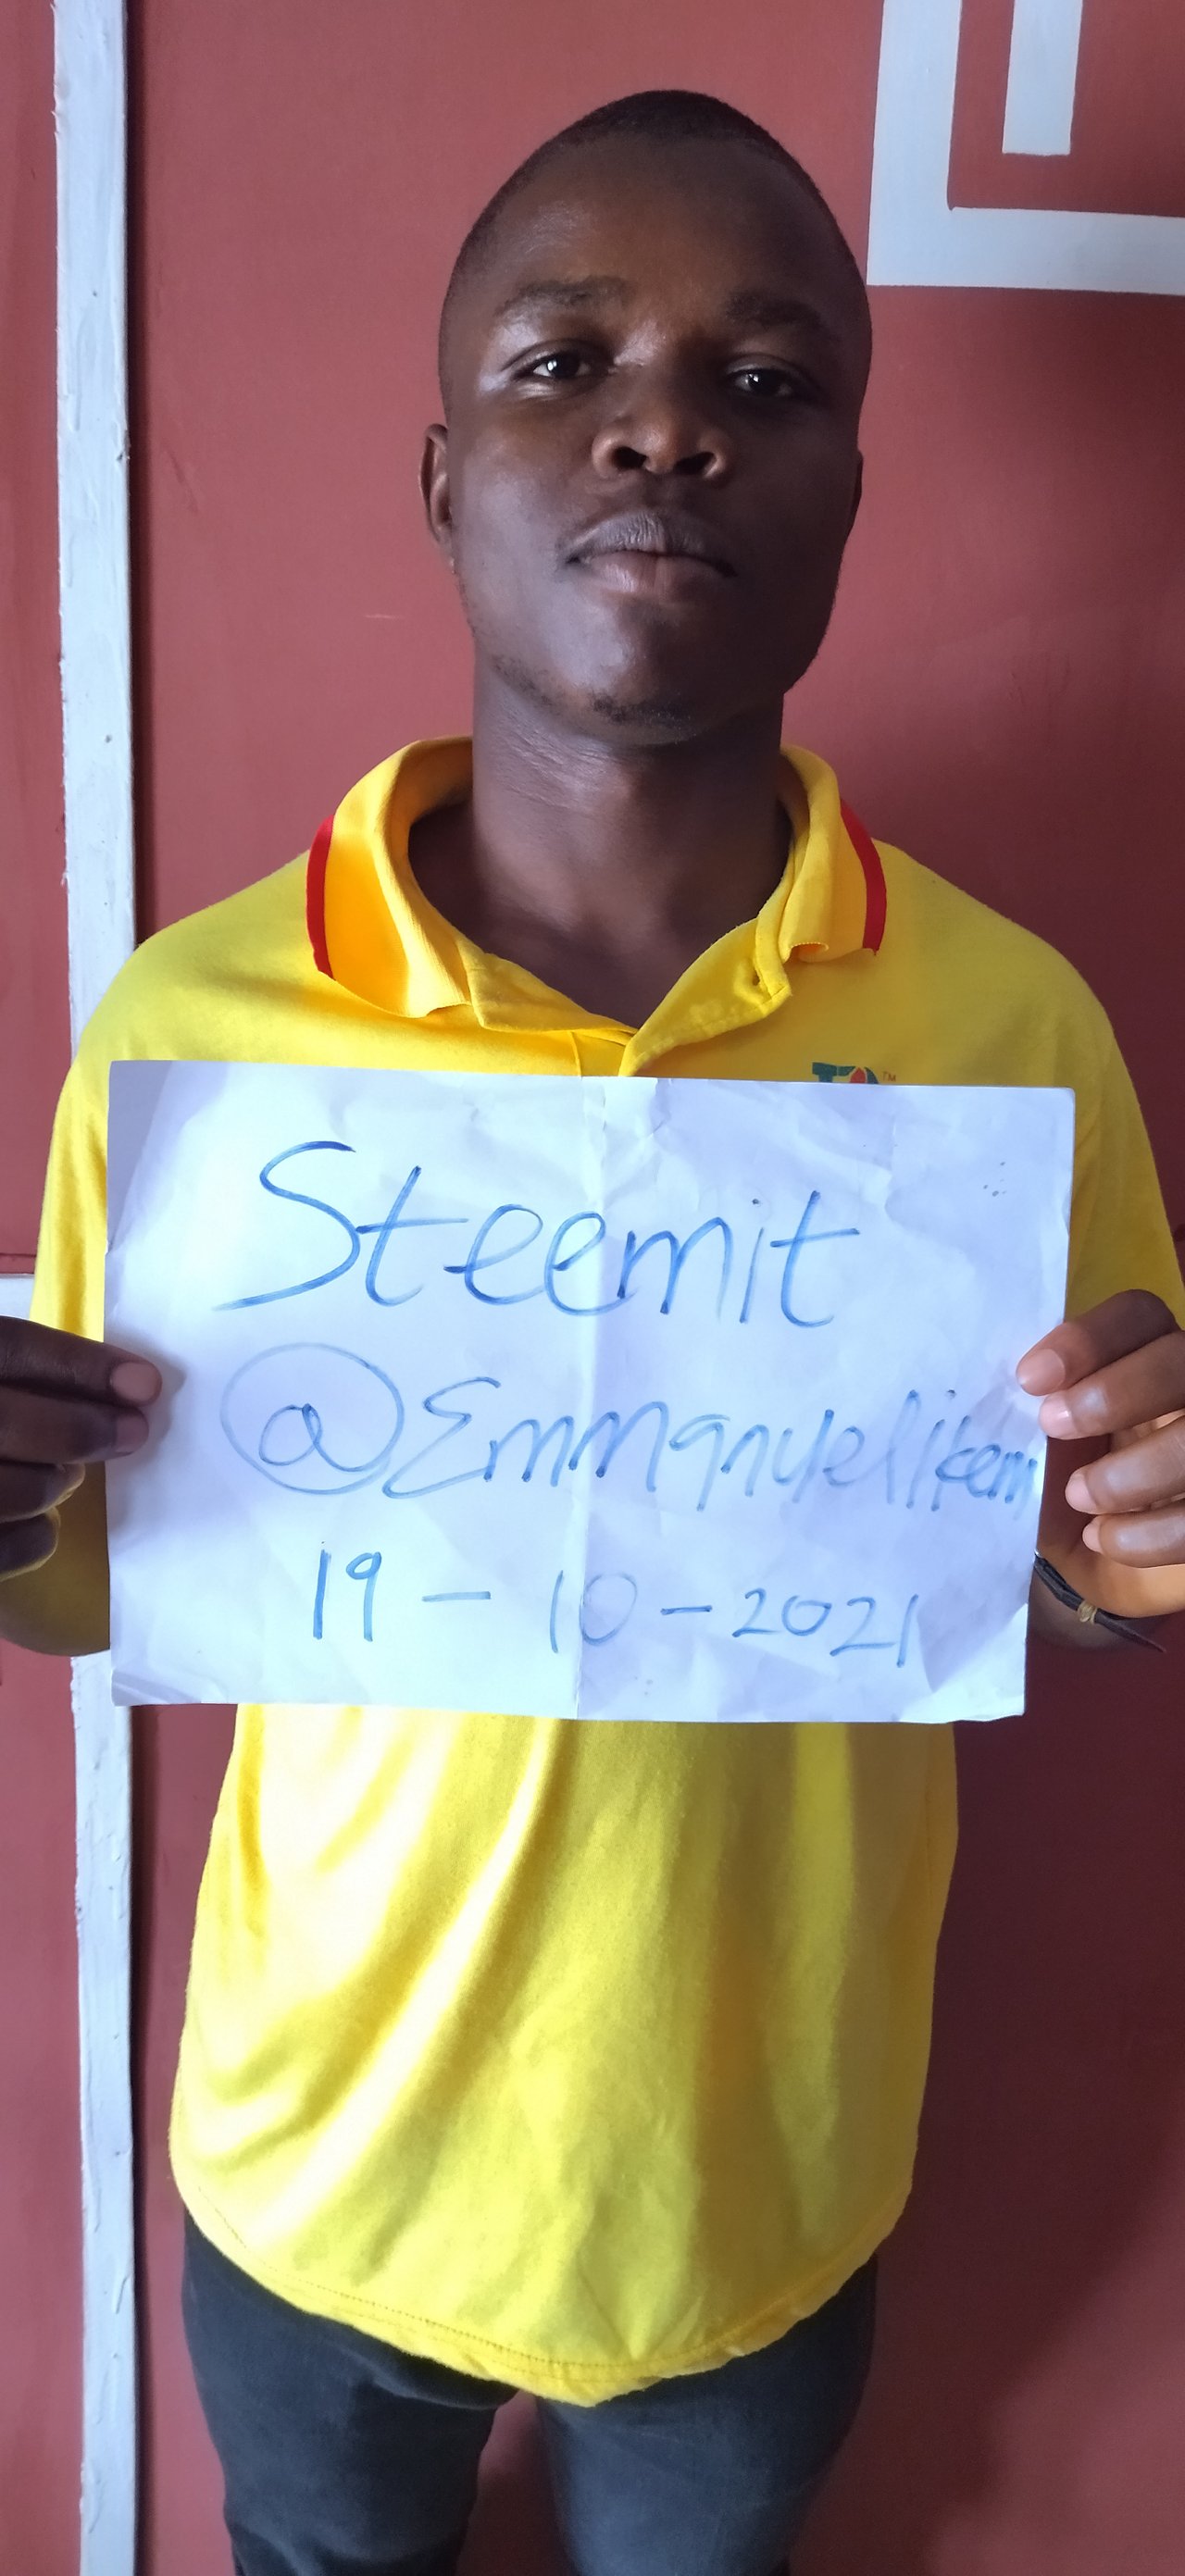 Steemit
@Emmanuelikemi
19 - 10 - 2021
TM